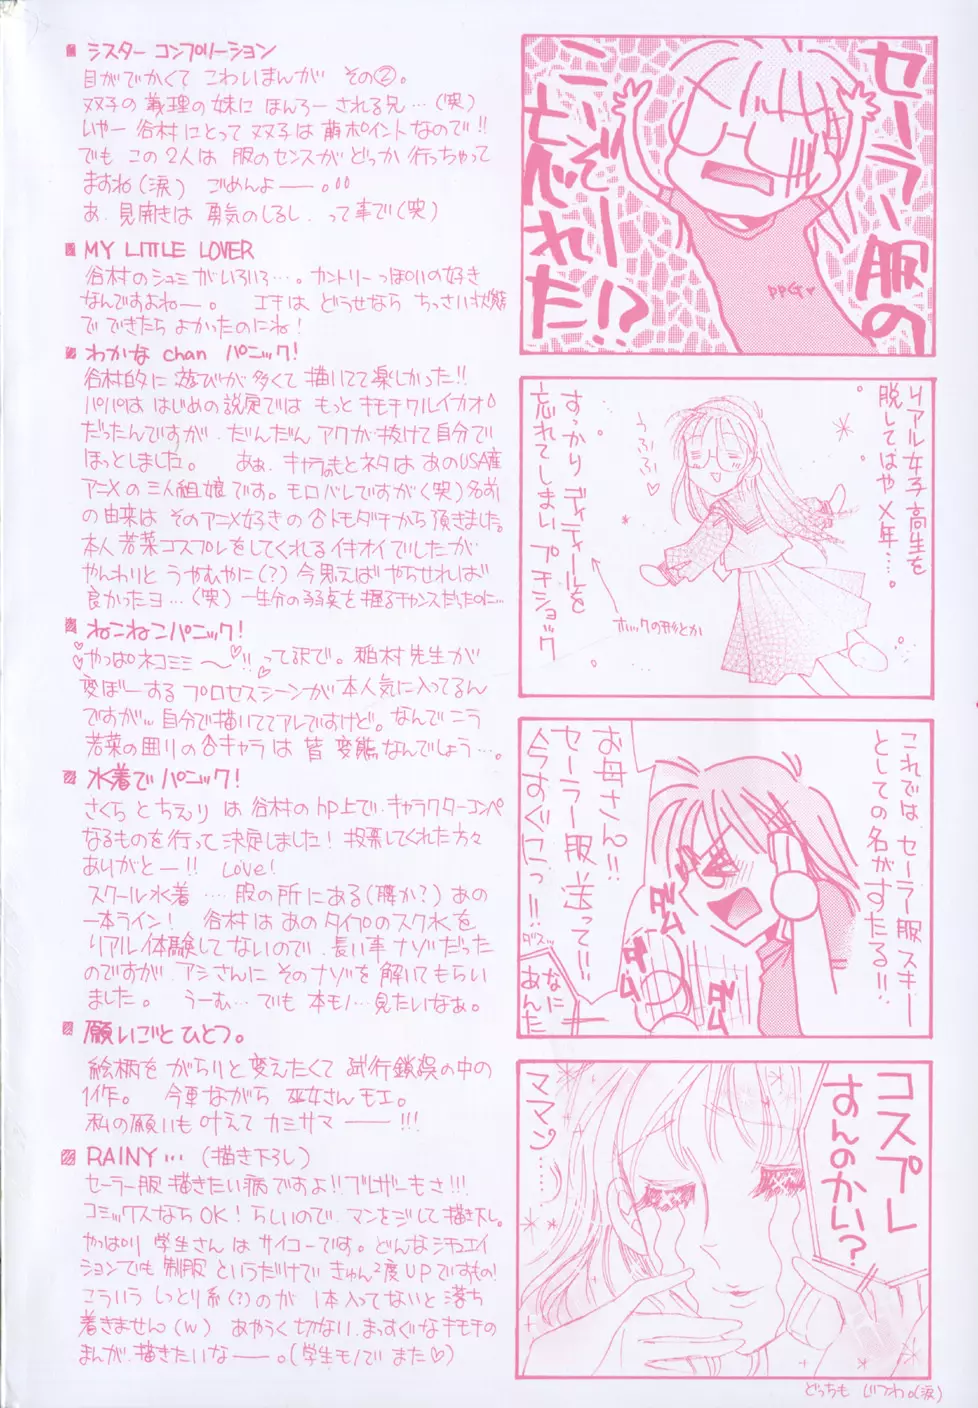 シスター コンプリーション
目がでかくて こわいまんが その②。
双子の義理の妹に ほんろー される兄…(笑)
いやー 谷村にとって 双子は 萌ポイントなので!!
でも この2人は 服のセンスが どっか 行っちゃって
ますね(涙) ごめんよー。
あ、見開きは 勇気のしるし、って事で(笑)
MY LITTLE LOVER
谷村のシュミがいろいろ…。カントリーっぽいの好き
なんですよねー。 エチは どうせなら ちっさい状態
で できたら よかったのにね!
わかな chan パニック!
谷村的に 遊びが 多くて 描いてて楽しかった!!
パパは はじめの設定では もっと キモチワルイカオ
だったんですが、だんだん アクが 抜けて自分で
ほっとしました。 ああ、キャラのもとネタは あのUSA産
アニメの三人組娘です。モロバレですが(笑)名前
の由来は そのアニメ好きの 合トモダチから頂きました。
本人 若菜コスプレをしてくれるイキオイでしたが
やんわりと うやむやに(?)今思えば やらせれば
良かったヨ…(笑)一生分の弱点を 握るチャンスだったのに…
ねこねこパニック!
やっぱネコミミ〜!! って訳で。稲村先生が
変ぼーする プロセスシーンが 本人気に入ってるん
ですが 自分で描いててアレですけど。なんで こう
若菜の囲りの キャラは 皆 変態なんでしょう…。
水着で パニック!
さくらと ちえり は 谷村の hp上で、キャラクターコンペ
なるものを 行って 決定しました! 投票してくれた方々
ありがとー!! Love!
スクール水着 … 股の所にある(腰か?)あの
一本ライン! 谷村は あのタイプのスク水を
リアル体験してないので、長い事ナゾだった
のですが、アシさんに そのナゾを 解いてもらい
ました。 うーむ… でも 本モノ…見たいなぁ。
願いごと ひとつ。
絵柄を がらりと 変えたくて 試行錯誤の中の
1作。 今更ながら 巫女さん モエ。
私の願いも 叶えて カミサマー!!!
RAINY…(描き下ろし)
セーラー服 描きたい病ですよ!!ブレザーもさ!!!
コミックスなら OK! らしいので、マンをジして 描き下し。
やっぱり 学生さんは サイコーです。どんなシチュエイ
ションでも 制服 というだけで きゅん2度UPですもの!
こういう しっとり系(?)のが 1本入ってないと 落ち
着きません(w) あやうく切ない、まっすぐなキモチの
まんが、描きたいなー。(学生モノで また♡)
セーラー服の
ppG♥
リアル女子高生を
脱してはやメ年…。
うふふふ
すっかり ディティールを
忘れてしまい プチショック
ホックの形とか
これでは セーラー服スキー
としての名がすたる!!
お母さん!!
セーラー服送って!!
今すぐにっ!!
ダム
ダム
なに
あんた
コスプレ
すんのかい?
ママン……
どっちも じつわ。(涙)